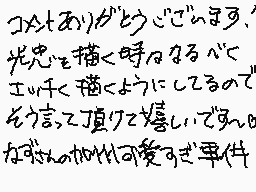 コメントありがとうございます、
光忠を描く時はなるべく
エッチく描くようにしてるので
そう言って頂けて嬉しいです〜
ねずさんの加州可愛すぎ事件